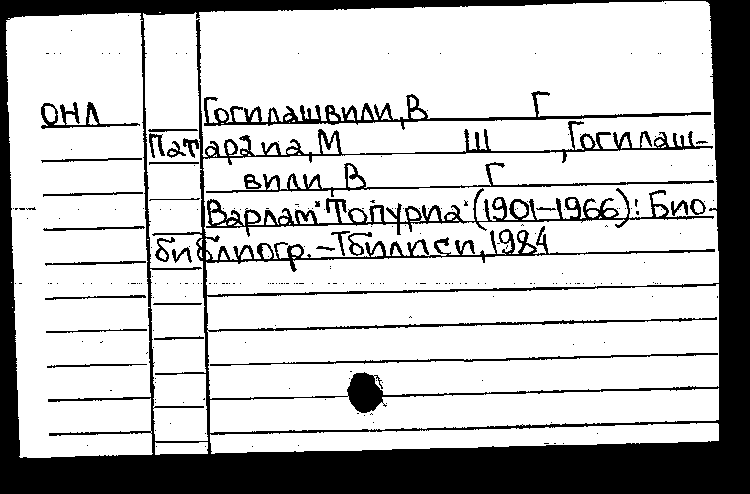 ОНЛ Гогилашвили, В Г
Патарая, М Ш , Гогилаш-
вили, В Г
Варлам Топурия (1901-1966): Био-
библиогр. - Тбилиси, 1984